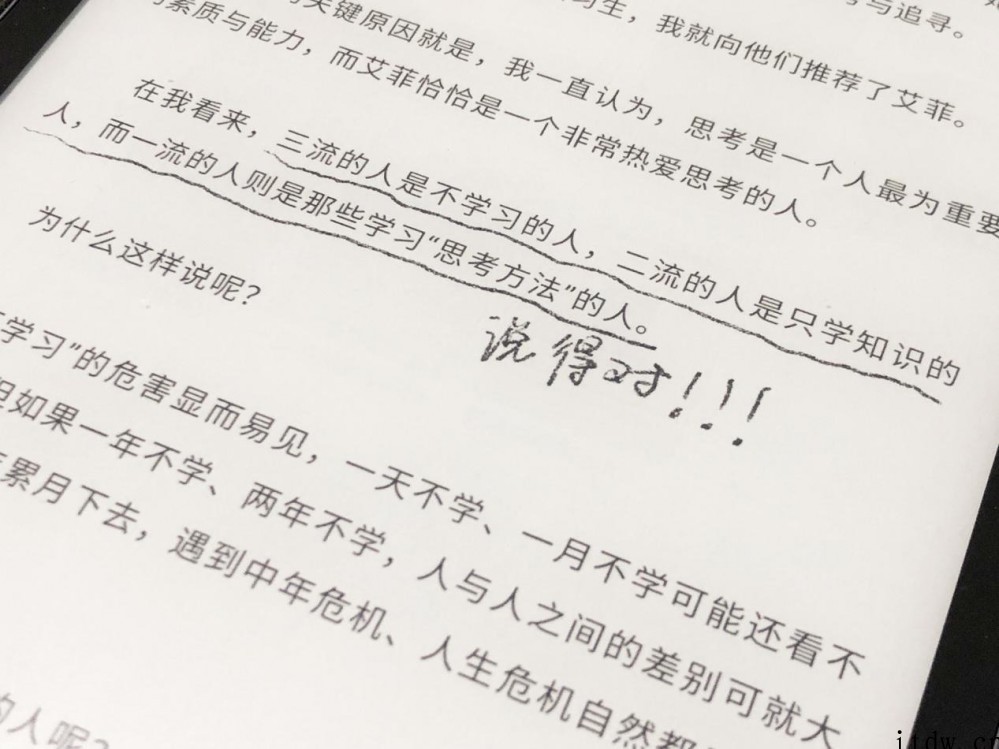 与追寻。
习生，我就向他们推荐了艾菲。
关键原因就是，我一直认为，思考是一个人最为重要
素质与能力，而艾菲恰恰是一个非常热爱思考的人。
在我看来，三流的人是不学习的人，二流的人是只学知识的
人，而一流的人则是那些学习“思考方法”的人。
说得对！！！
为什么这样说呢？
学习”的危害显而易见，一天不学、一月不学可能还看不
但如果一年不学、两年不学，人与人之间的差别可就大
累月下去，遇到中年危机、人生危机自然都
的人呢？